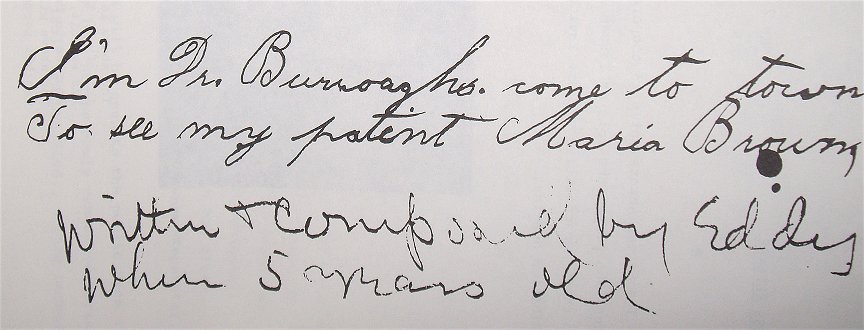 I'm Dr. Burroaghs. come to town
To see my patent Maria Brown,
written + composed by Eddy
when 5 years old